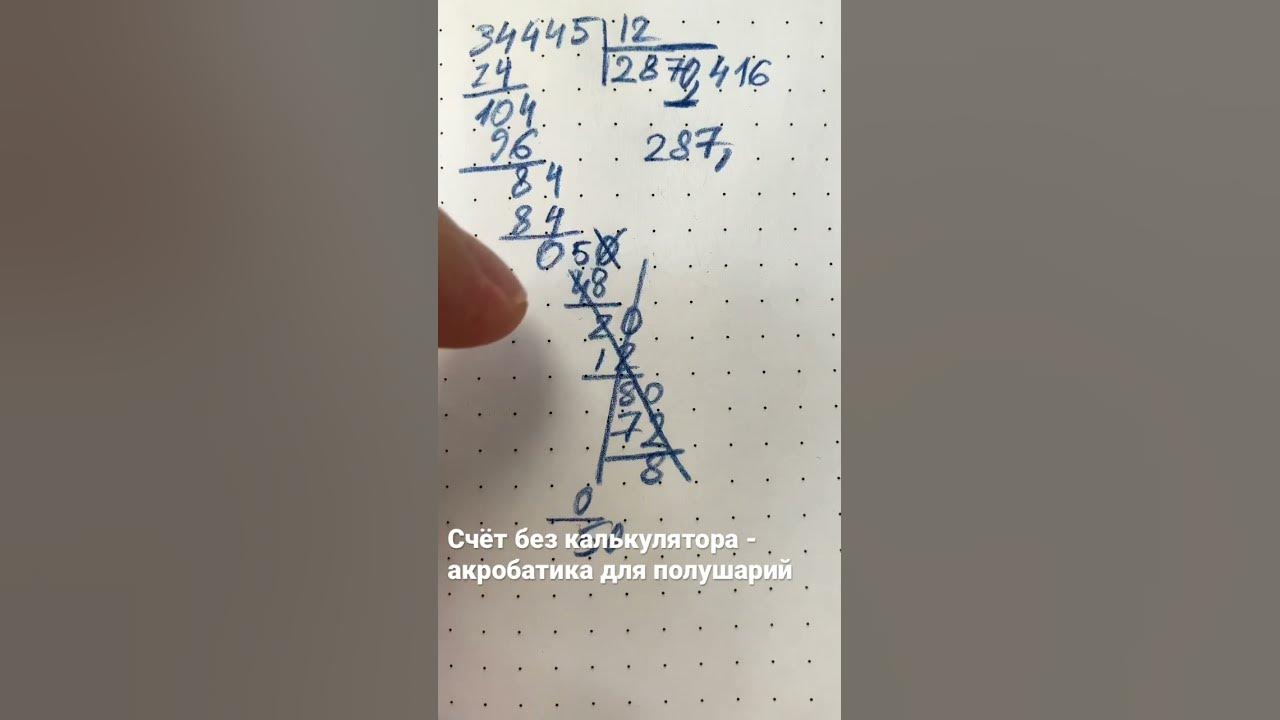 34445 12
24 2870,416
104
96 287,
84
84
050
48
20
12
80
72
8
0
50
Счёт без калькулятора -
акробатика для полушарий